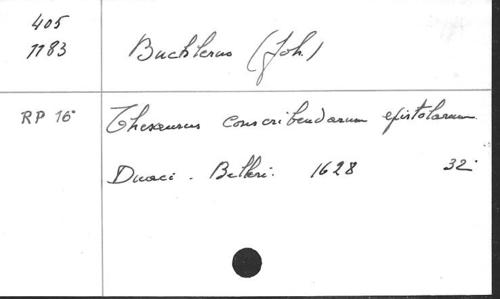 405
1183 Buchlerus (Joh.)
RP 16° Thesaurus conscribendarum epistolarum
Duaci. Belleri. 1628 32°